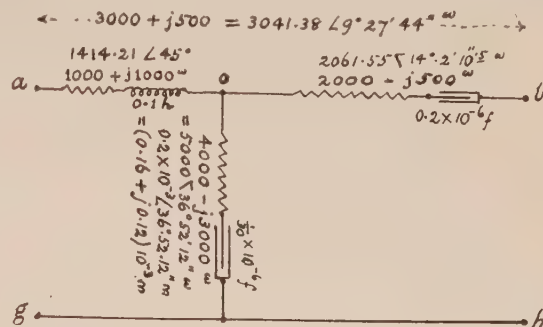 3000 + j500 = 3041.38 ∠9° 27' 44" ω
1414.21 ∠45°
1000 + j1000 ω
0.1 h
2061.55 ⦣ 14°.2' 10".5 ω
2000 - j500 ω
0.2 × 10⁻⁶ f
a
o
b
4000 - j3000 ω
= 5000 ⦣ 36° 52' 12" ω
0.2 × 10⁻³ / 36°.52'.12" m
= (0.16 + j0.12) 10⁻³ m
1/30 × 10⁻⁶ f
g
h